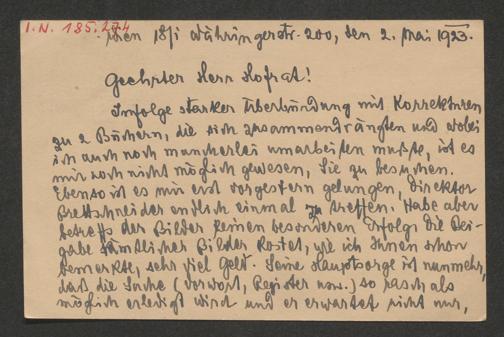 I.N. 185.274
Wien 18/1 Währingerstr. 200, den 2. Mai 1923.
Geehrter Herr Hofrat!
Infolge starker Überbürdung mit Korrekturen
zu 2 Büchern, die sich zusammendrängten und wobei
ich auch noch mancherlei umarbeiten mußte, ist es
mir noch nicht möglich gewesen, Sie zu besuchen.
Ebenso ist es mir erst vorgestern gelungen, Direktor
Brettschneider endlich einmal zu treffen. Habe aber
betreffs der Bilder keinen besonderen Erfolg. Die Bei-
gabe sämtlicher Bilder kostet, wie ich Ihnen schon
bemerkte, sehr viel Geld. Seine Hauptsorge ist nunmehr,
daß die Sache (Vorwort, Register usw.) so rasch als
möglich erledigt wird und er erwartet nicht nur,